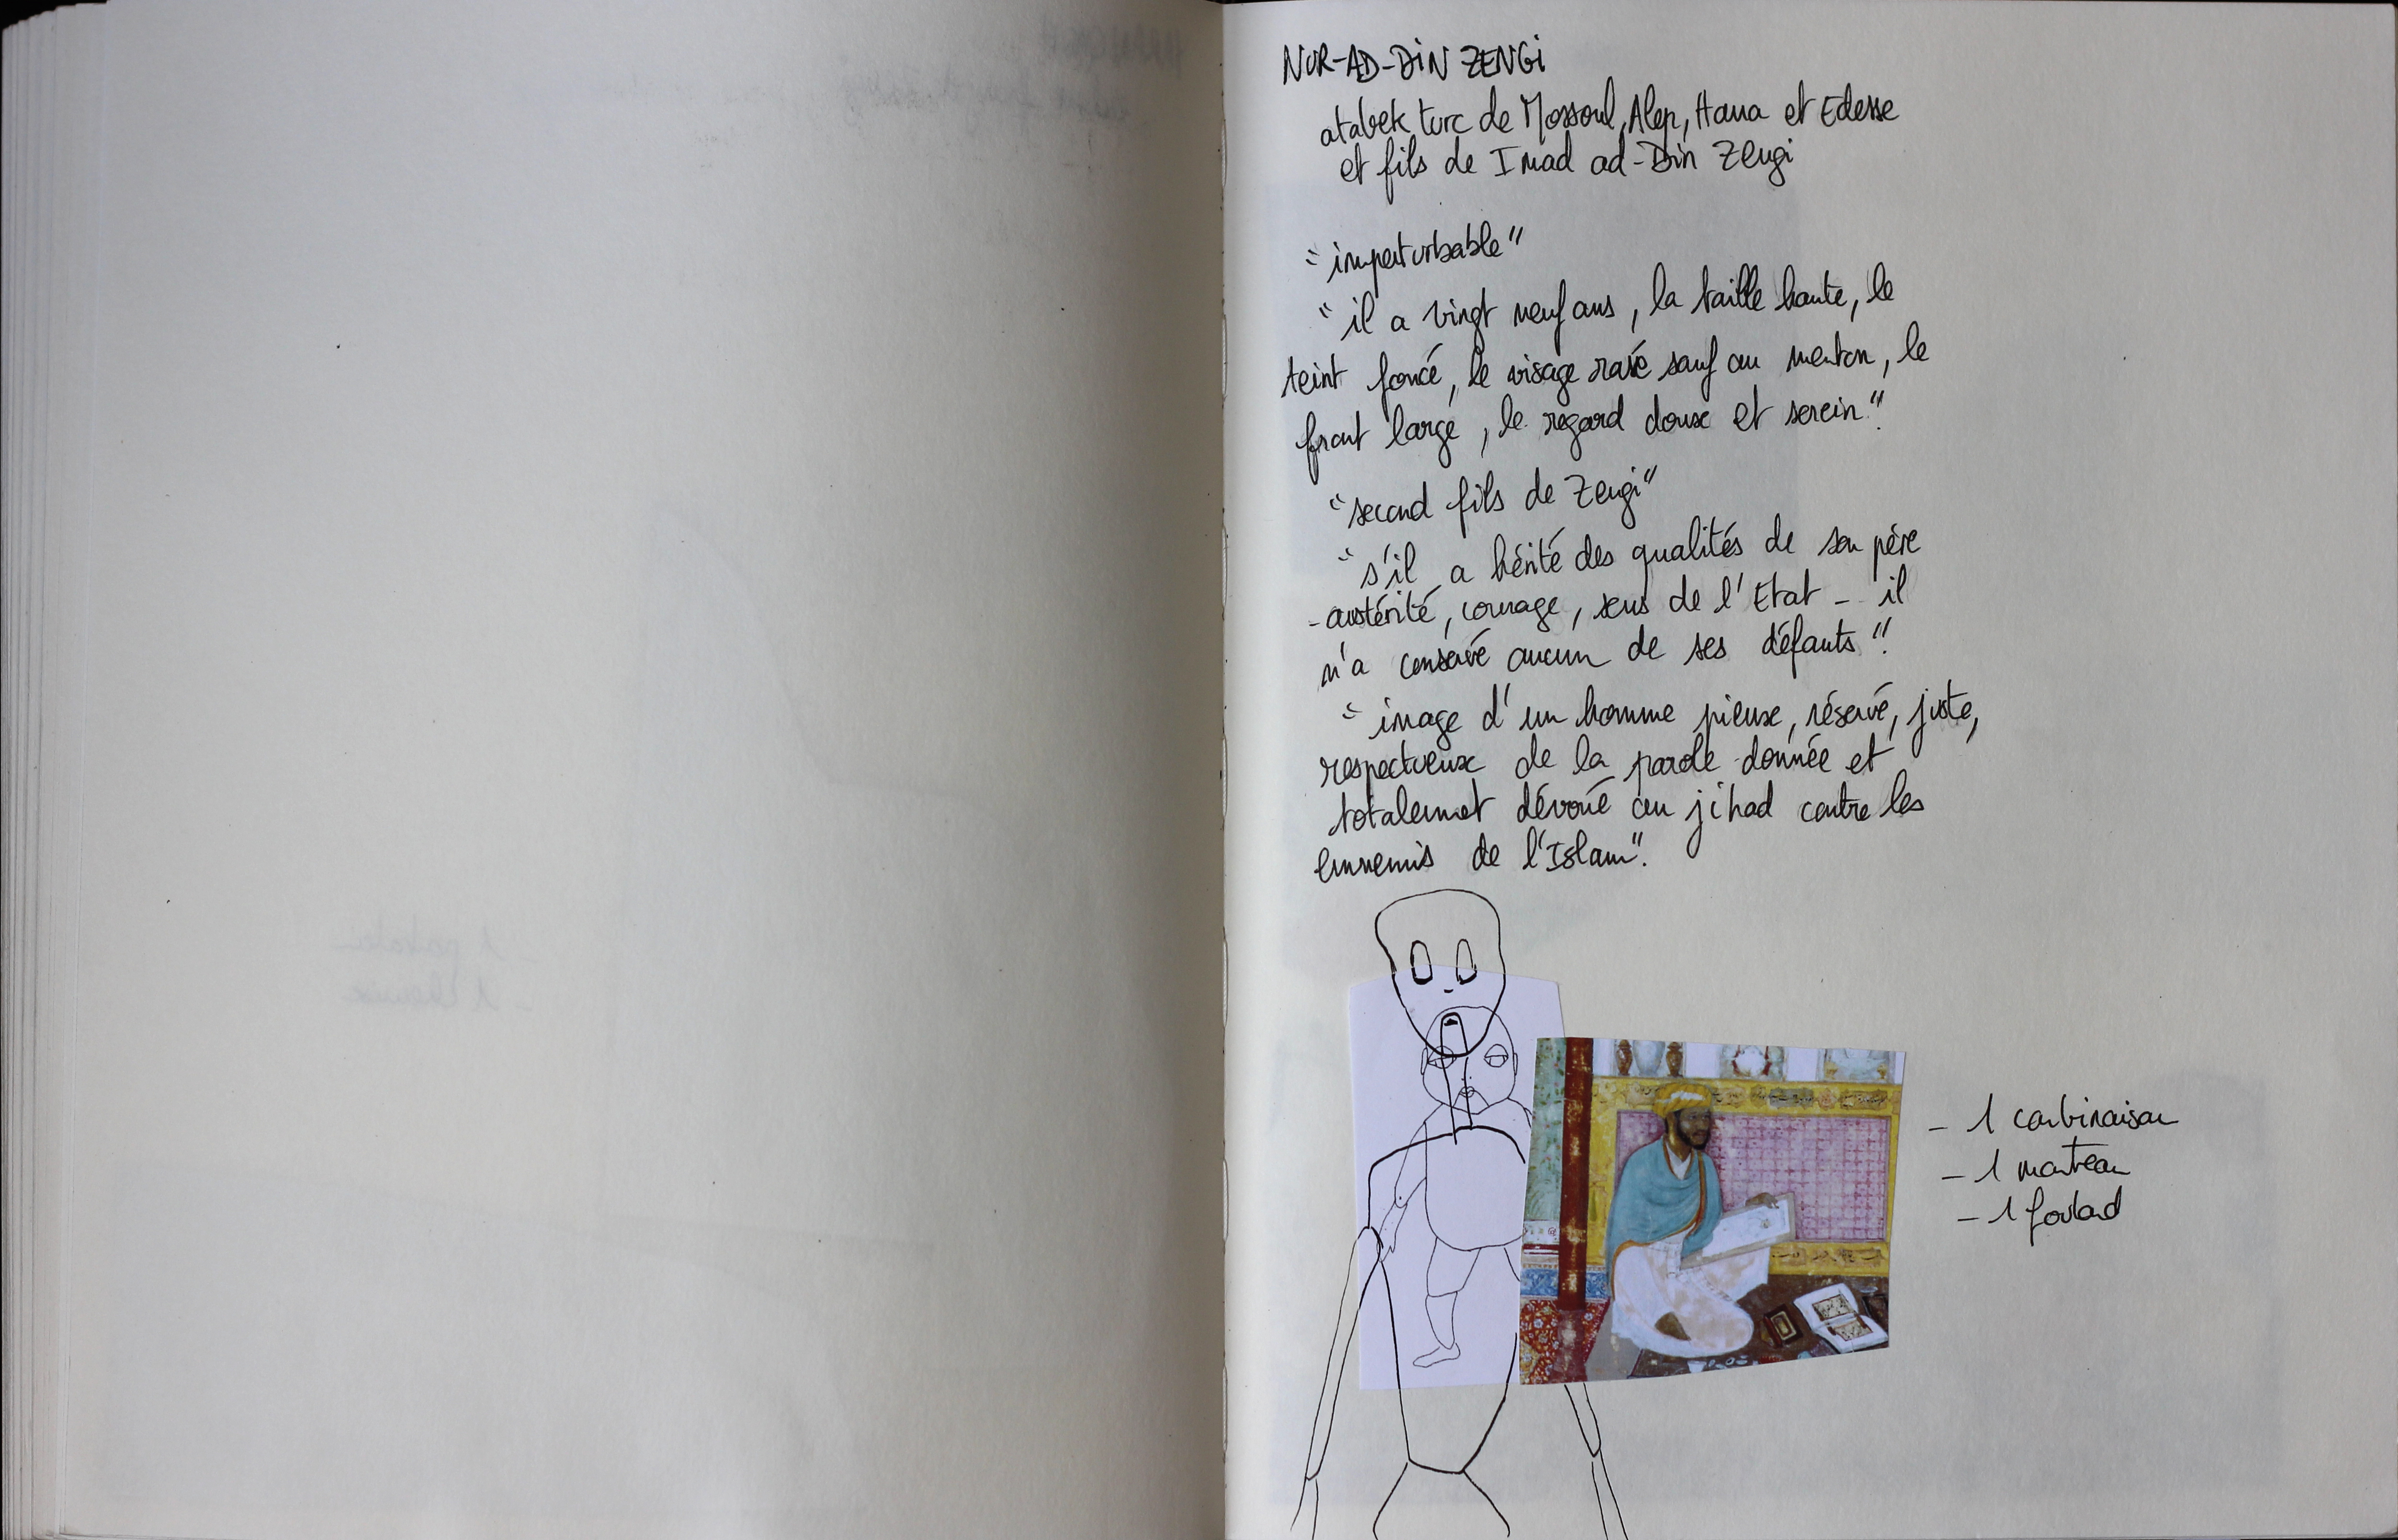 NUR-AD-DIN ZENGI
atabek turc de Mossoul, Alep, Hama et Edesse
et fils de Imad ad-Din Zengi
"imperturbable"
"il a vingt neuf ans, la taille haute, le
teint foncé, le visage rasé sauf au menton, le
front large, le regard doux et serein."
"second fils de Zengi"
"s'il a hérité des qualités de son père
- austérité, courage, sens de l'Etat - il
n'a conservé aucun de ses défauts".
"image d'un homme pieux, réservé, juste,
respectueux de la parole donnée et
totalement dévoué au jihad contre les
ennemis de l'Islam".
- 1 combinaison
- 1 manteau
- 1 foulard